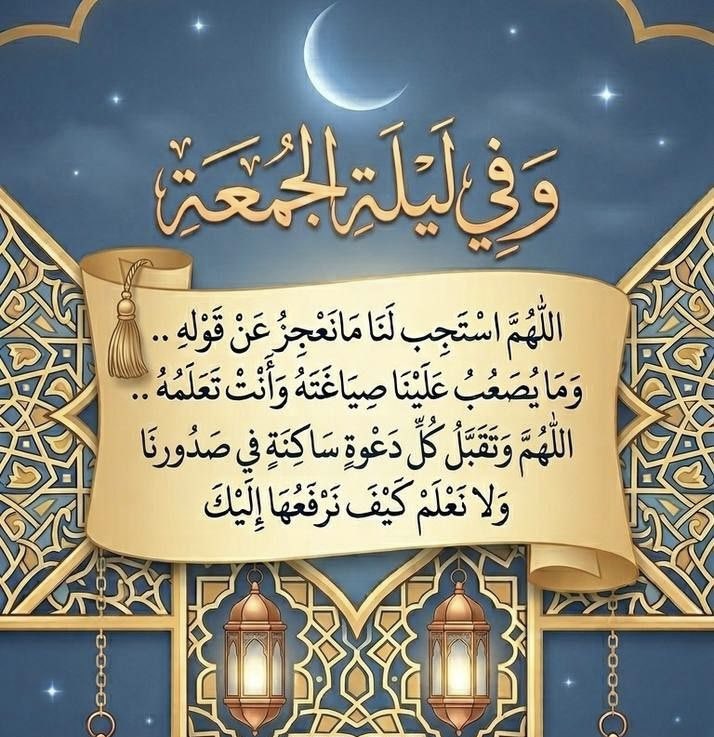 وَفِي لَيْلَةِ الجُمُعَةِ
اللَّهُمَّ اسْتَجِب لَنَا مَانَعْجِزُ عَنْ قَوْلهِ ..
وَمَا يُصَعُبُ عَلَيْنَا صِيَاغَتَهُ وَأَنْتْ تَعَلَمُهُ ..
اللَّهُمَّ وَتَقَبَّلُ كُلِّ دَعْوةٍ سَاكِنَةٍ في صَدُورنَا
وَلا نَعْلَمْ كَيْفَ نَرْفَعُهَا إِلَيْكَ